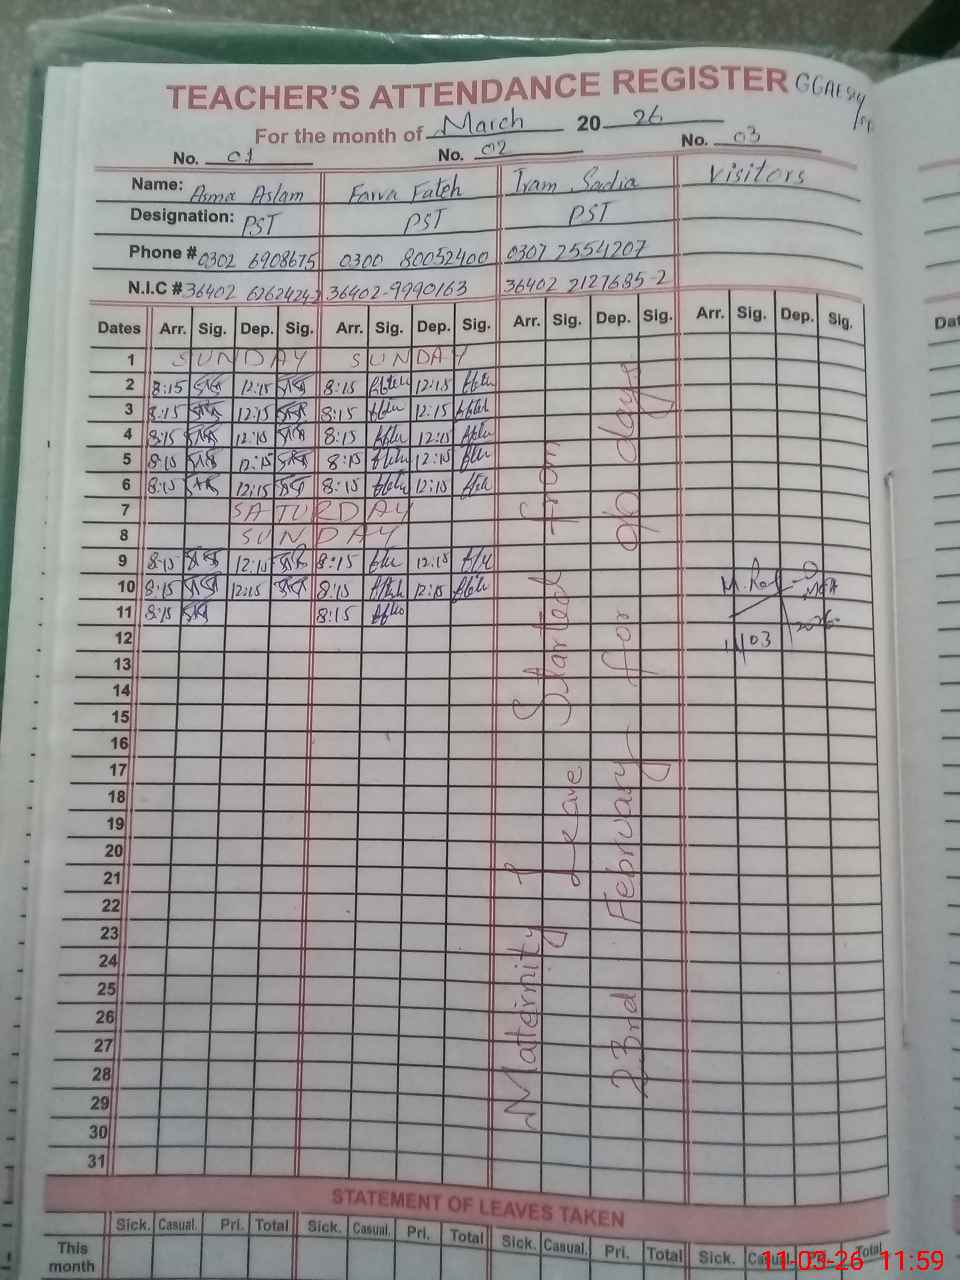 TEACHER'S ATTENDANCE REGISTER
For the month of March 20 26
No. 01 No. 02 No. 03
Name: Asma Aslam Farva Fateh Iram Sadia Visitors
Designation: PST PST PST
Phone # 0302 6908675 0300 80052400 0307 2554207
N.I.C # 36402 6262424-2 36402-9990163 36402 2127685-2
Dates Arr. Sig. Dep. Sig. Arr. Sig. Dep. Sig. Arr. Sig. Dep. Sig. Arr. Sig. Dep. Sig.
1 SUNDAY SUNDAY
2 8:15 12:15 8:15 12:15
3 8:15 12:15 8:15 12:15
4 8:15 12:15 8:15 12:15
5 8:15 12:15 8:15 12:15
6 8:15 12:15 8:15 12:15
7 SATURDAY
8 SUNDAY
9 8:15 12:15 8:15 12:15
10 8:15 12:15 8:15 12:15
11 8:15 8:15
12
13
14
15
16
17
18
19
20
21
22
23
24
25
26
27
28
29
30
31
Maternity Leave Started from
23rd February for 90 days
STATEMENT OF LEAVES TAKEN
Sick. Casual. Pri. Total Sick. Casual. Pri. Total Sick. Casual. Pri. Total Sick. Pri. Total
This
month
11-03-26 11:59